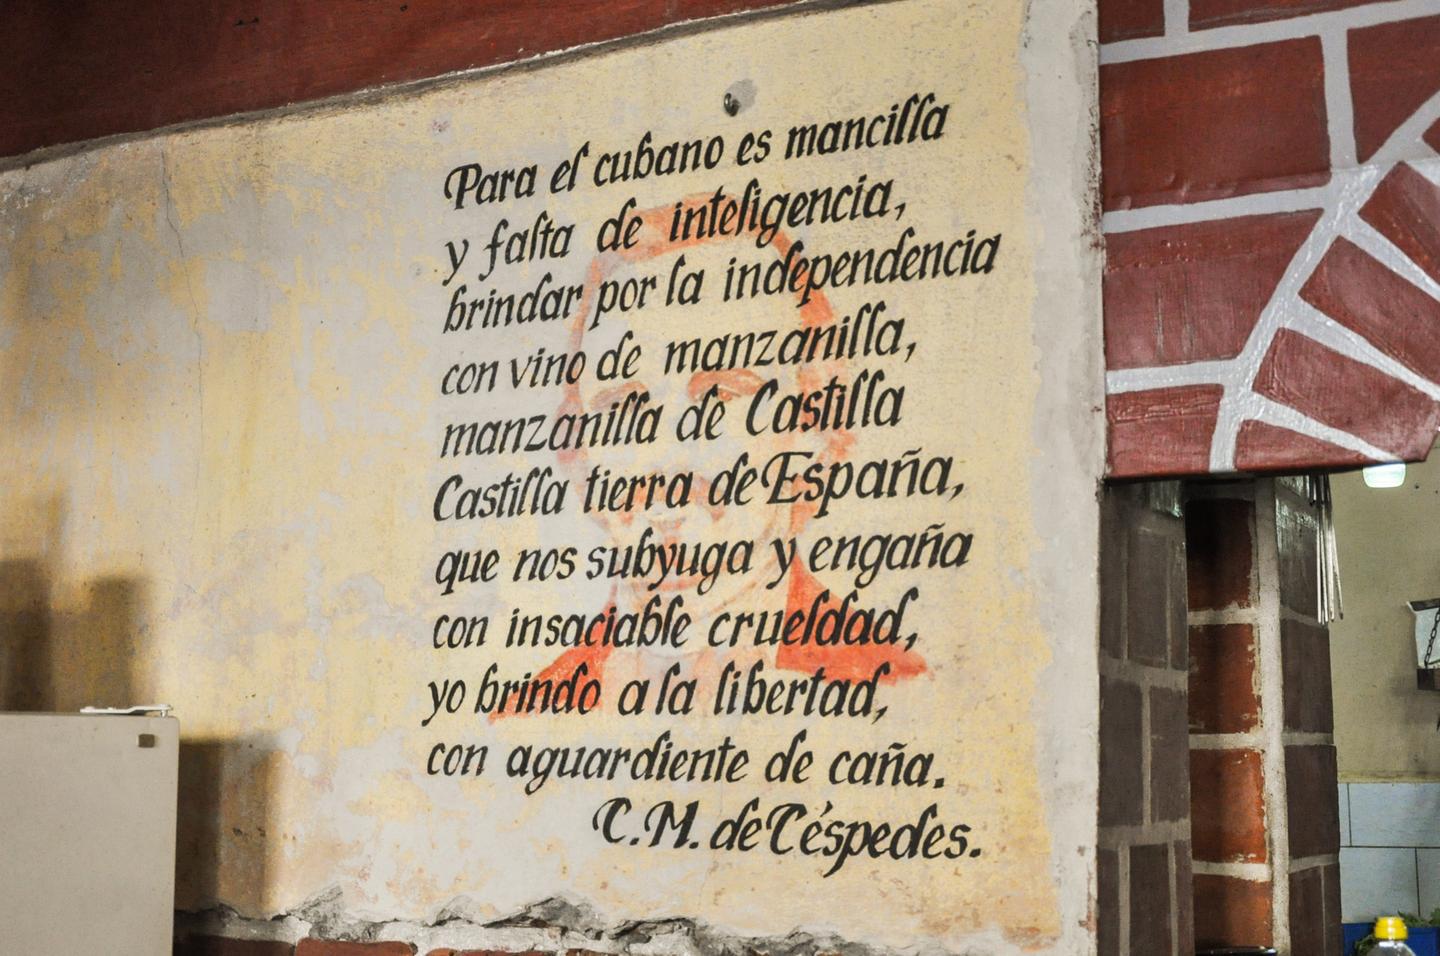 Para el cubano es mancilla
y falta de inteligencia,
brindar por la independencia
con vino de manzanilla,
manzanilla de Castilla
Castilla tierra de España,
que nos subyuga y engaña
con insaciable crueldad,
yo brindo a la libertad,
con aguardiente de caña.
C.M. de Céspedes.